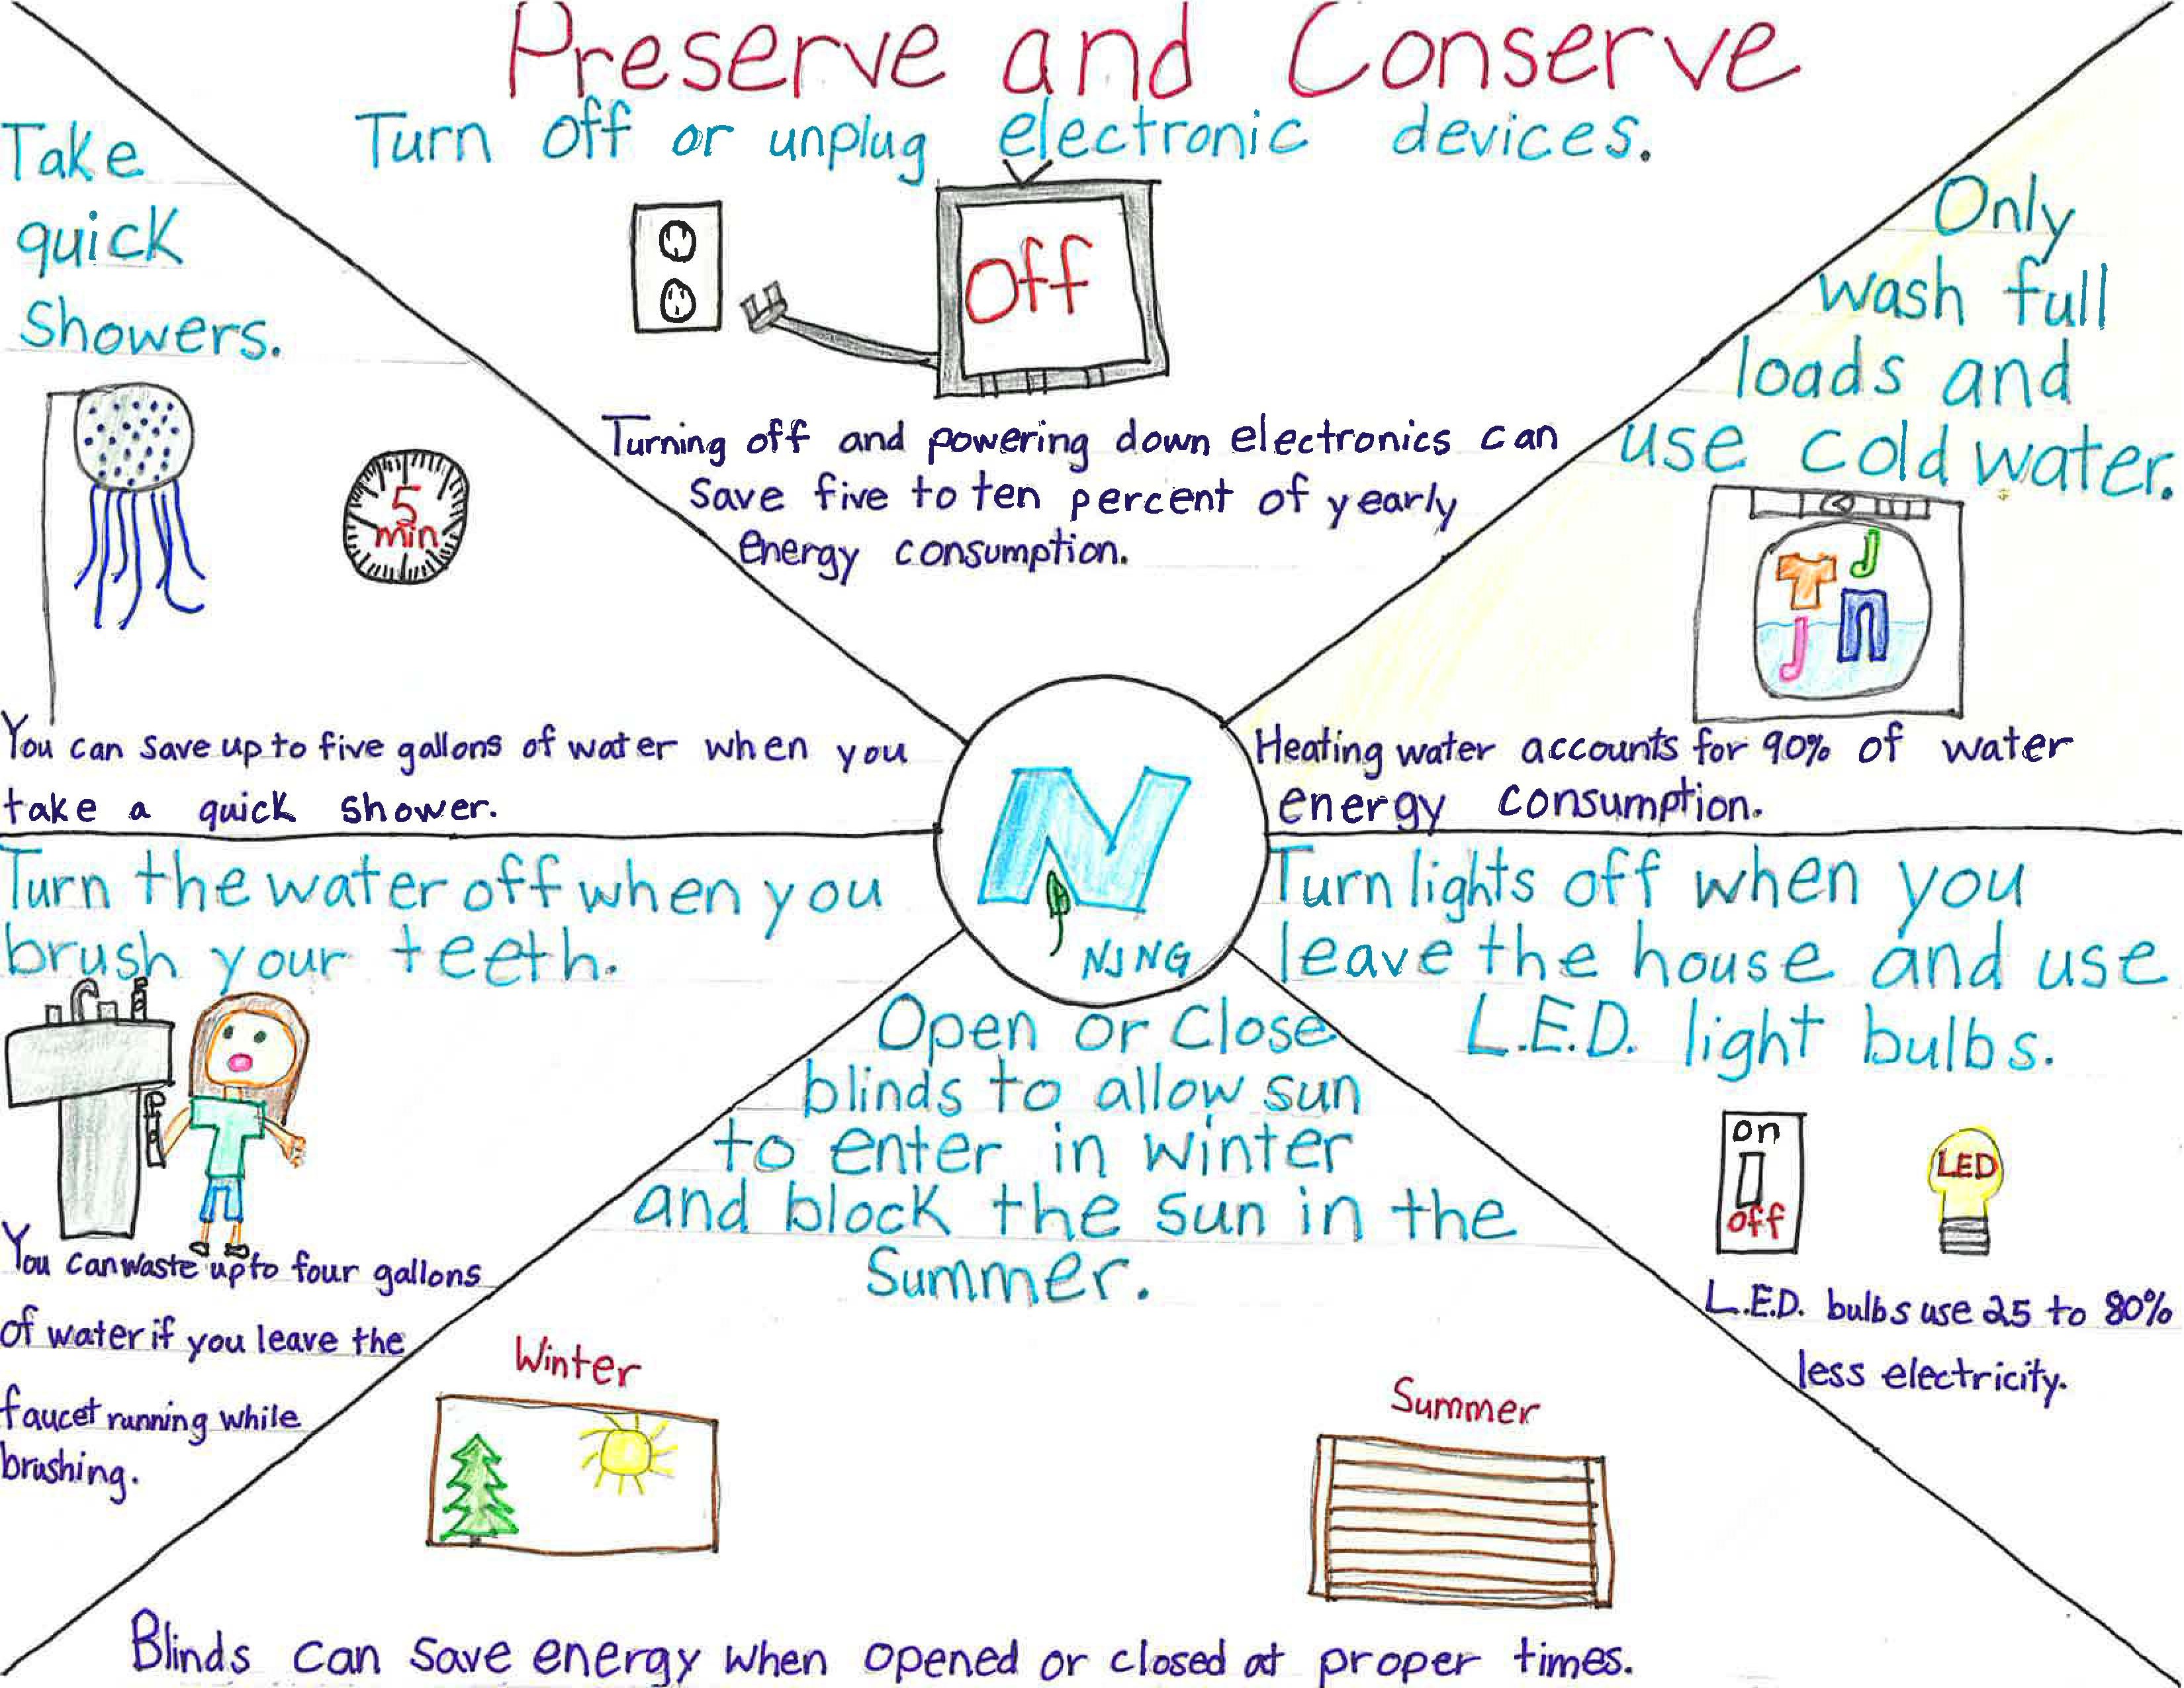 Preserve and Conserve
Turn off or unplug electronic devices.
off
Turning off and powering down electronics can
save five to ten percent of yearly
energy consumption.
Take
quick
Showers.
5
min
You can save up to five gallons of water when you
take a quick shower.
Only
wash full
loads and
use cold water.
Heating water accounts for 90% of water
energy consumption.
N
NJNG
Turn the water off when you
brush your teeth.
You can waste up to four gallons
of water if you leave the
faucet running while
brushing.
Turn lights off when you
leave the house and use
L.E.D. light bulbs.
on
off
LED
L.E.D. bulbs use 25 to 80%
less electricity.
Open or Close
blinds to allow sun
to enter in winter
and block the sun in the
Summer.
Winter
Summer
Blinds can save energy when opened or closed at proper times.